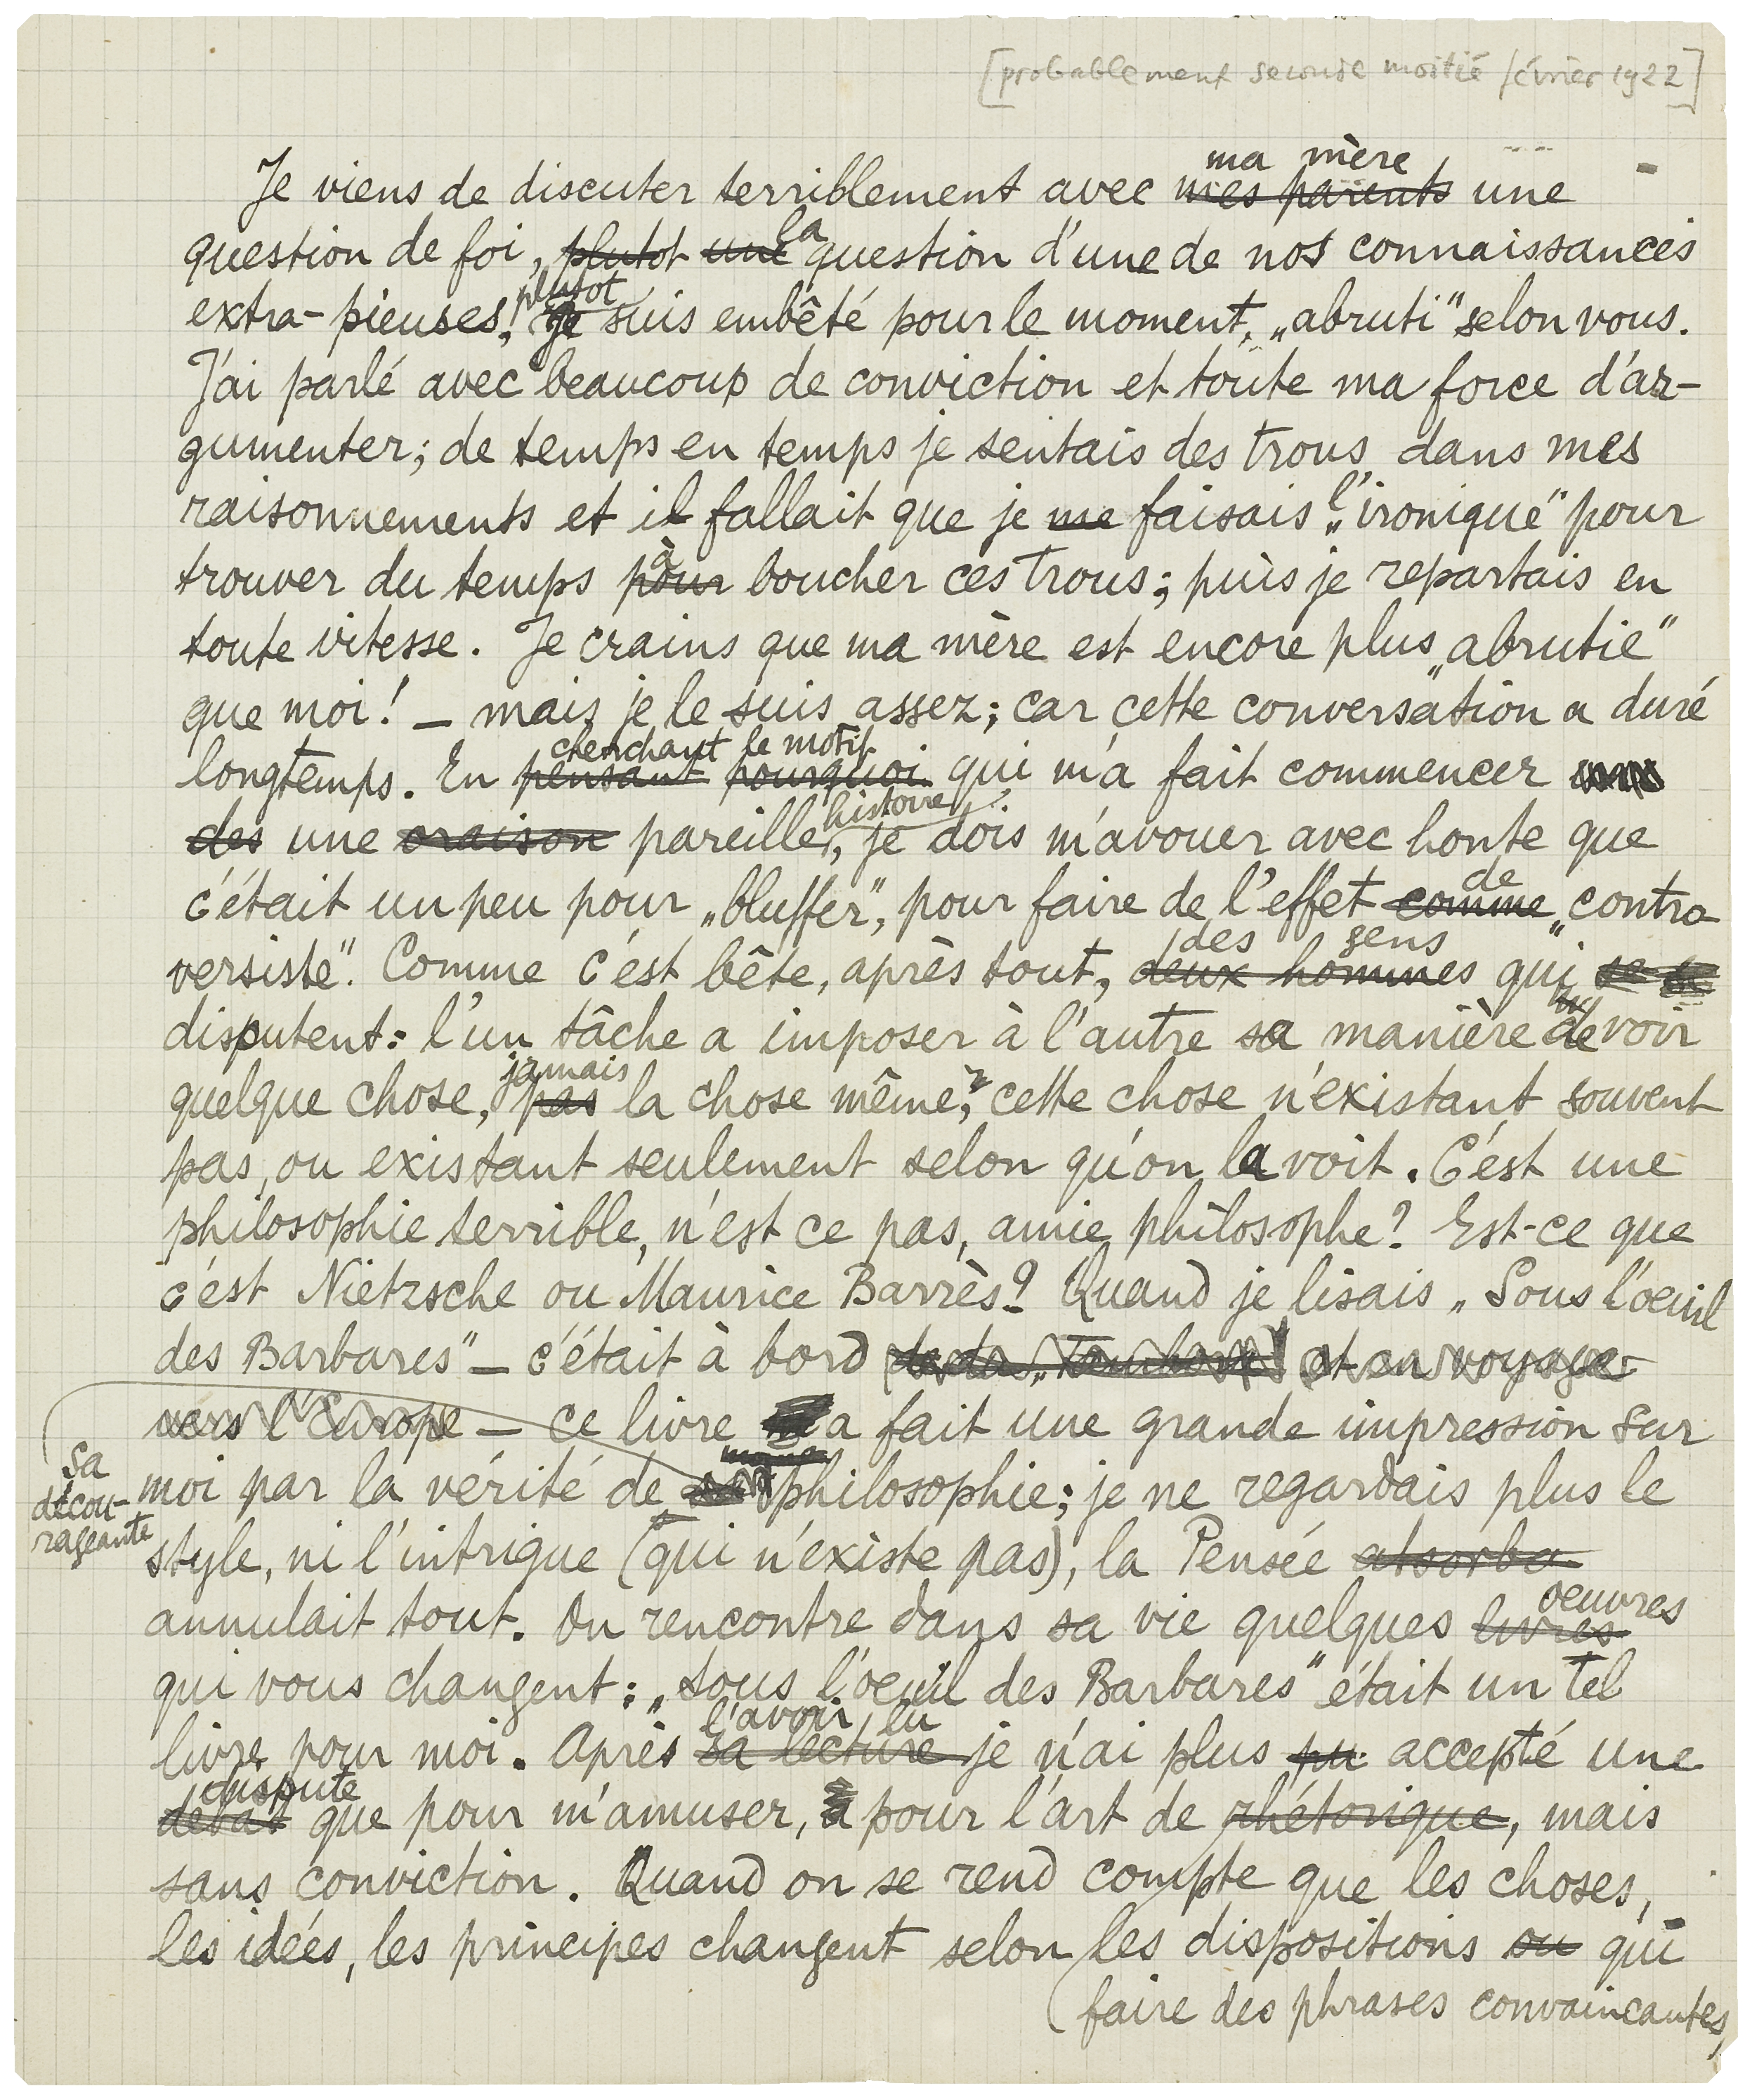 [probablement seconde moitié février 1922]
ma mère
Je viens de discuter terriblement avec mes parents une
la
question de foi, plutot une question d'une de nos connaissances
plutot
extra-pieuses! Je suis embêté pour le moment, „abruti" selon vous.
J'ai parlé avec beaucoup de conviction et toute ma force d'ar-
gumenter; de temps en temps je sentais des trous dans mes
raisonnements et il fallait que je me faisais l'„ironique" pour
à
trouver du temps pour boucher ces trous; puis je repartais en
toute vitesse. Je crains que ma mère est encore plus „abrutie"
que moi! — mais je le suis assez; car cette conversation a duré
cherchant le motif
longtemps. En pensant pourquoi qui m'a fait commencer
histoire
des une oraison pareille, je dois m'avouer avec honte que
de
c'était un peu pour „bluffer", pour faire de l'effet comme „contro
des gens
versiste". Comme c'est bête, après tout, deux hommes qui se
disputent: l'un tâche a imposer à l'autre sa manière de voir
jamais
quelque chose, pas la chose même, cette chose n'existant souvent
pas, ou existant seulement selon qu'on la voit. C'est une
philosophie terrible, n'est ce pas, amie philosophe? Est-ce que
c'est Nietzsche ou Maurice Barrès? Quand je lisais „Sous l'oeuil
des Barbares" — c'était à bord et en voyage
vers l'Europe — ce livre a fait une grande impression sur
sa
décou-
rageante
moi par la vérité de philosophie; je ne regardais plus le
style, ni l'intrigue (qui n'éxiste pas), la Pensée absorba
annulait tout. On rencontre dans sa vie quelques livres
oeuvres
qui vous changent: „Sous l'oeuil des Barbares" était un tel
l'avoir lu
livre pour moi. Après sa lecture je n'ai plus pu accepté une
dispute
débat que pour m'amuser, pour l'art de rhétorique, mais
sans conviction. Quand on se rend compte que les choses,
les idées, les principes changent selon les dispositions ou qui
(faire des phrases convaincantes,